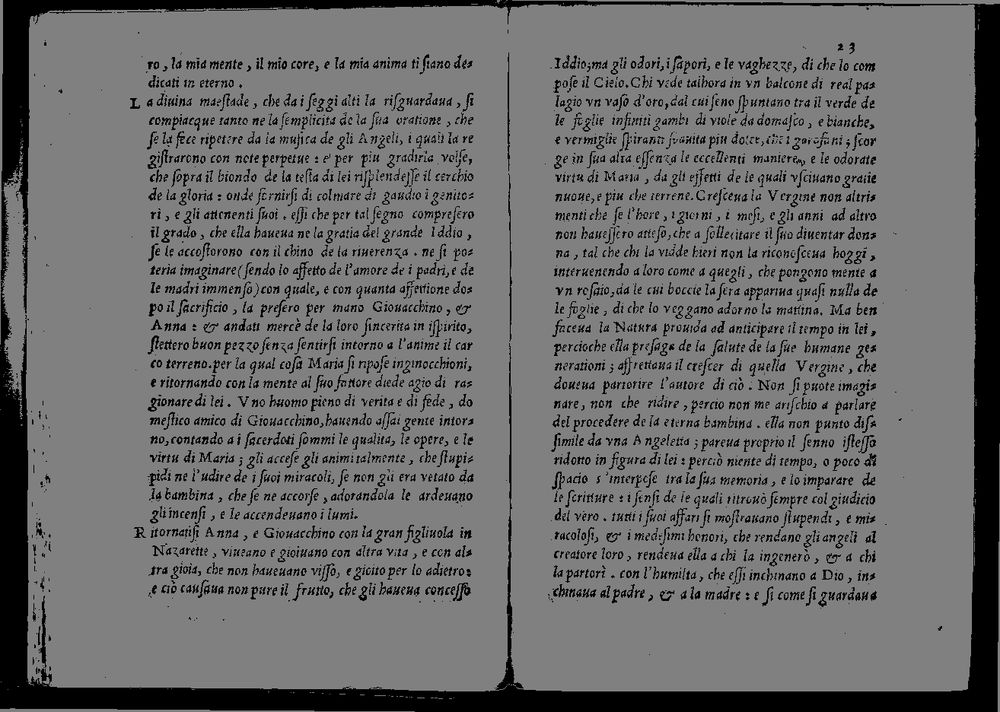 ro, la mia mente, il mio core, e la mia anima ti ſiano de⸗
dicati in eterno.
L a diuina maeſtade, che da i ſeggi alti la riſguardaua, ſi
compiacque tanto ne la ſemplicita de la ſua oratione, che
ſe la fece ripetere da la muſica de gli Angeli, i quali la re
giſtrarono con note perpetue: e per piu gradirla volſe,
che ſopra il biondo de la teſta di lei riſplendeſſe il cerchio
de la gloria: onde fornirſi di colmare di gaudio i genito⸗
ri, e gli attenenti ſuoi. eſſi che per tal ſegno compreſero
il grado, che ella haueua ne la gratia del grande Iddio,
ſe le accoſtorono con il chino de la riuerenza. ne ſi po⸗
teria imaginare (ſendo lo affetto de l'amore de i padri, e de
le madri immenſo) con quale, e con quanta affettione do⸗
po il ſacrificio, la preſero per mano Giouacchino, &
Anna: & andati mercè de la loro ſincerita in iſpirito,
ſtettero buon pezzo ſenza ſentirſi intorno a l'anime il car
co terreno. per la qual coſa Maria ſi ripoſe inginocchioni,
e ritornando con la mente al ſuo fattore diede agio di ra⸗
gionare di lei. Vno huomo pieno di verita e di fede, do
meſtico amico di Giouacchino, hauendo aſſai gente intor⸗
no, contando a i ſacerdoti ſommi le qualita, le opere, e le
virtu di Maria; gli acceſe gli animi talmente, che ſtupi⸗
pidi ne l'udire de i ſuoi miracoli, ſe non gli era vetato da
la bambina, che ſe ne accorſe, adorandola le ardeuano
gli incenſi, e le accendeuano i lumi.
R itornatiſi Anna, e Giouacchino con la gran figliuola in
Nazarette, viueano e gioiuano con altra vita, e con al⸗
tra gioia, che non haueuano viſſo, e gioito per lo adietro:
e ciò cauſaua non pure il frutto, che gli haueua conceſſo
23
Iddio; ma gli odori, i ſapori, e le vaghezze, di che lo com
poſe il Cielo. Chi vede talhora in vn balcone di real pa⸗
lagio vn vaſo d'oro, dal cui ſeno ſpuntano tra il verde de
le foglie infiniti gambi di viole da domaſco, e bianche,
e vermiglie ſpiranti ſuauita piu dolce, che i garofani; ſcor
ge in ſua alta eſſenza le eccellenti maniere, e le odorate
virtu di Maria, da gli effetti de le quali vſciuano gratie
nuoue, e piu che terrene. Creſceua la Vergine non altri⸗
menti che ſe l'hore, i giorni, i meſi, e gli anni ad altro
non haueſſero atteſo, che a ſollecitare il ſuo diuentar don⸗
na, tal che chi la vidde hieri non la riconoſceua hoggi,
interuenendo a loro come a quegli, che pongono mente a
vn roſaio, da le cui boccie la ſera appariua quaſi nulla de
le foglie, di che lo veggano adorno la mattina. Ma ben
faceua la Natura prouida ad anticipare il tempo in lei,
percioche ella preſaga de la ſalute de la ſue humane ge⸗
nerationi; affrettaua il creſcer di quella Vergine, che
doueua partorire l'autore di ciò. Non ſi puote imagi⸗
nare, non che ridire, percio non me ariſchio a parlare
del procedere de la eterna bambina. ella non punto diſ⸗
ſimile da vna Angeletta; pareua proprio il ſenno iſteſſo
ridotto in figura di lei: perciò niente di tempo, o poco di
ſpacio s'interpoſe tra la ſua memoria, e lo imparare de
le ſcritture: i ſenſi de le quali ritrouò ſempre col giudicio
del vero. tutti i ſuoi affari ſi moſtrauano ſtupendi, e mi⸗
racoloſi, & i medeſimi honori, che rendano gli angeli al
creatore loro, rendeua ella a chi la ingenerò, & a chi
la partorì. con l'humilta, che eſſi inchinano a Dio, in⸗
chinaua al padre, & a la madre: e ſi come ſi guardaua